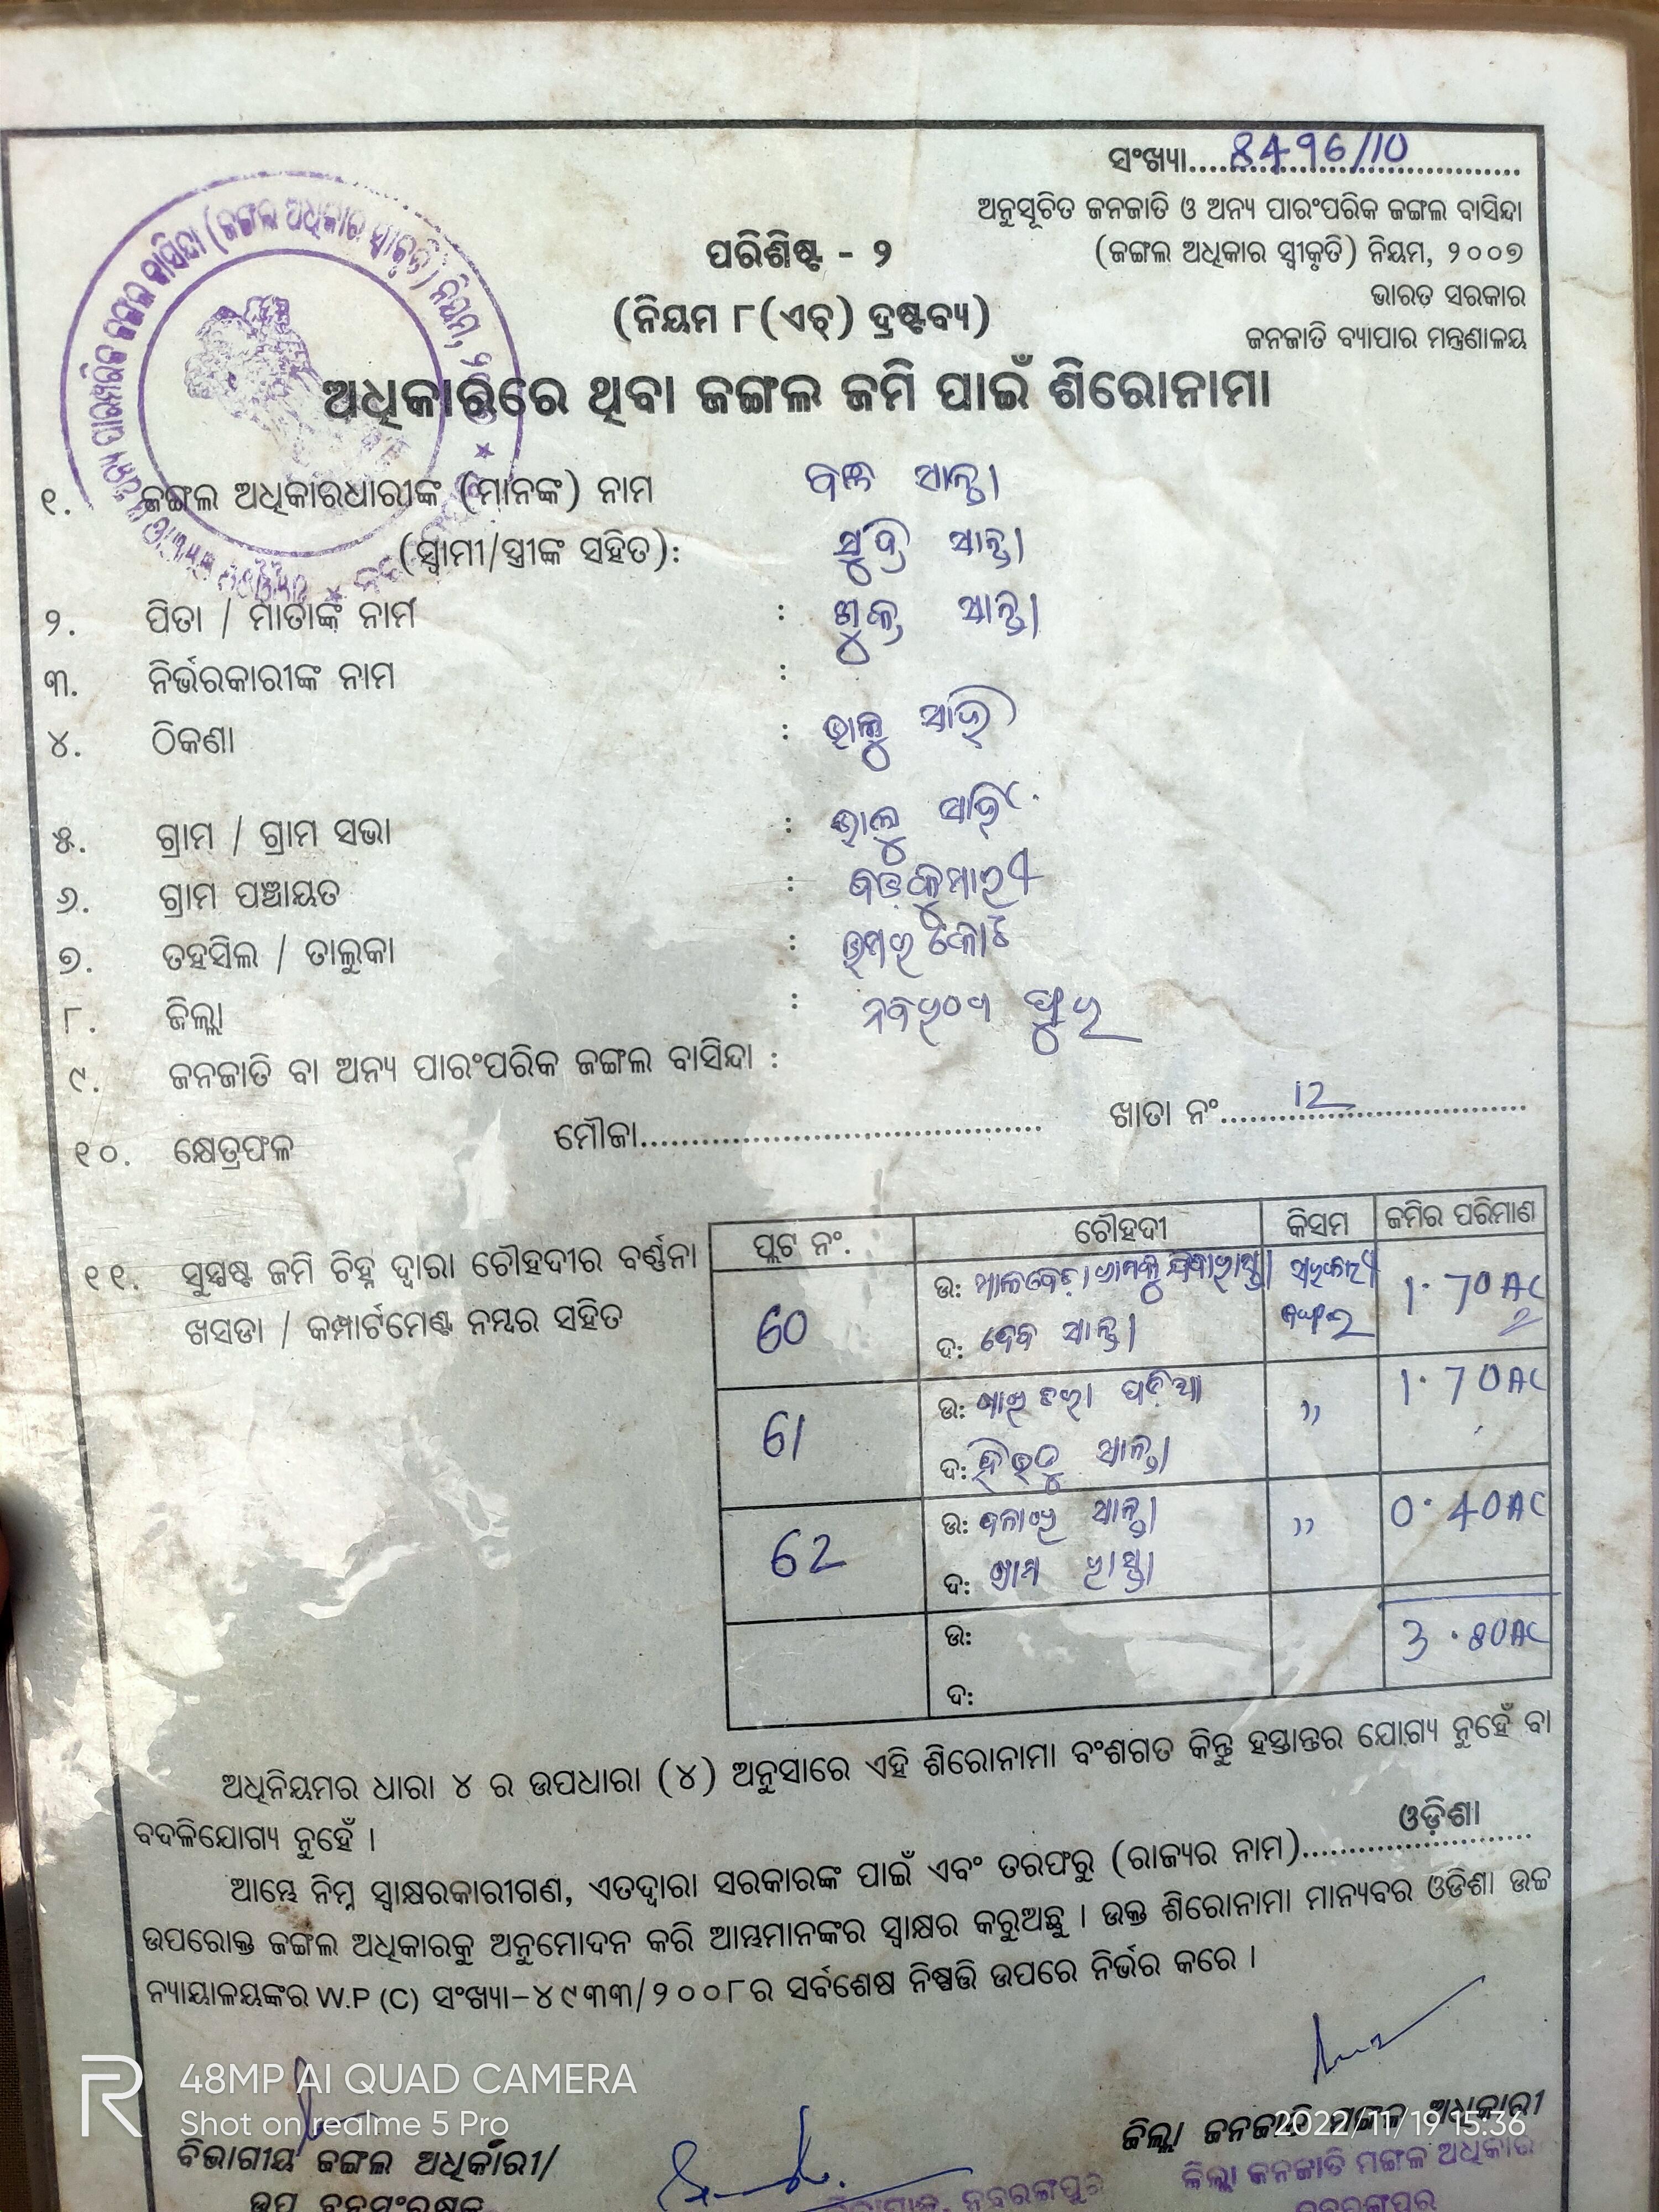 ସଂଖ୍ୟା.......8496/10.......
ଅନୁସୂଚିତ ଜନଜାତି ଓ ଅନ୍ୟ ପାରଂପରିକ ଜଙ୍ଗଲ ବାସିନ୍ଦା
(ଜଙ୍ଗଲ ଅଧିକାର ସ୍ୱୀକୃତି) ନିୟମ, ୨୦୦୭
ଭାରତ ସରକାର
ଜନଜାତି ବ୍ୟାପାର ମନ୍ତ୍ରଣାଳୟ
ପରିଶିଷ୍ଟ - ୨
(ନିୟମ ୮(ଏଚ୍) ଦ୍ରଷ୍ଟବ୍ୟ)
ଅଧିକାରରେ ଥିବା ଜଙ୍ଗଲ ଜମି ପାଇଁ ଶିରୋନାମା
୧. ଜଙ୍ଗଲ ଅଧିକାରଧାରୀଙ୍କ (ମାନଙ୍କ) ନାମ ସାନ୍ତା
(ସ୍ୱାମୀ/ସ୍ତ୍ରୀଙ୍କ ସହିତ): ସାନ୍ତା
୨. ପିତା / ମାତାଙ୍କ ନାମ : ସାନ୍ତା
୩. ନିର୍ଭରକାରୀଙ୍କ ନାମ :
୪. ଠିକଣା : ଭାଲୁ
୫. ଗ୍ରାମ / ଗ୍ରାମ ସଭା : ଭାଲୁ
୬. ଗ୍ରାମ ପଞ୍ଚାୟତ : ବଡ଼କୁମାରୀ
୭. ତହସିଲ / ତାଲୁକା : ଉମରକୋଟ
୮. ଜିଲ୍ଲା : ନବରଂଗ ପୁର
୯. ଜନଜାତି ବା ଅନ୍ୟ ପାରଂପରିକ ଜଙ୍ଗଲ ବାସିନ୍ଦା :
୧୦. କ୍ଷେତ୍ରଫଳ ମୌଜା.............................. ଖାତା ନଂ.......12.......
୧୧. ସୁସ୍ପଷ୍ଟ ଜମି ଚିହ୍ନ ଦ୍ୱାରା ଚୌହଦୀର ବର୍ଣ୍ଣନା
ଖସଡା / କମ୍ପାର୍ଟମେଣ୍ଟ ନମ୍ବର ସହିତ
ପ୍ଲଟ ନଂ. ଚୌହଦୀ କିସମ ଜମିର ପରିମାଣ
60 ଉ: ସରକାରୀ 1.70 AC
ଦ: ଦେବ ସାନ୍ତା ଜଙ୍ଗଲ
61 ଉ: ପଡ଼ିଆ ,, 1.70 AC
ଦ: ସାନ୍ତା
62 ଉ: ସାନ୍ତା ,, 0.40 AC
ଦ:
ଉ: 3.80 AC
ଦ:
ଅଧିନିୟମର ଧାରା ୪ ର ଉପଧାରା (୪) ଅନୁସାରେ ଏହି ଶିରୋନାମା ବଂଶଗତ କିନ୍ତୁ ହସ୍ତାନ୍ତର ଯୋଗ୍ୟ ନୁହେଁ ବା
ବଦଳିଯୋଗ୍ୟ ନୁହେଁ ।
ଆମ୍ଭେ ନିମ୍ନ ସ୍ୱାକ୍ଷରକାରୀଗଣ, ଏତଦ୍ୱାରା ସରକାରଙ୍କ ପାଇଁ ଏବଂ ତରଫରୁ (ରାଜ୍ୟର ନାମ).......ଓଡ଼ିଶା.......
ଉପରୋକ୍ତ ଜଙ୍ଗଲ ଅଧିକାରକୁ ଅନୁମୋଦନ କରି ଆମ୍ଭମାନଙ୍କର ସ୍ୱାକ୍ଷର କରୁଅଛୁ । ଉକ୍ତ ଶିରୋନାମା ମାନ୍ୟବର ଓଡିଶା ଉଚ୍ଚ
ନ୍ୟାୟାଳୟଙ୍କର W.P (C) ସଂଖ୍ୟା-୪୯୩୩/୨୦୦୮ର ସର୍ବଶେଷ ନିଷ୍ପତ୍ତି ଉପରେ ନିର୍ଭର କରେ ।
48MP AI QUAD CAMERA
Shot on realme 5 Pro
2022/11/19 15:36
ବିଭାଗୀୟ ଜଙ୍ଗଲ ଅଧିକାରୀ/
ଉପ ବନସଂରକ୍ଷକ
ନବରଙ୍ଗପୁର
ଜିଲ୍ଲା ଜନଜାତି ମଙ୍ଗଳ ଅଧିକାରୀ
ଜିଲ୍ଲା ଜନଜାତି ମଙ୍ଗଳ ଅଧିକାରୀ
ନବରଙ୍ଗପୁର